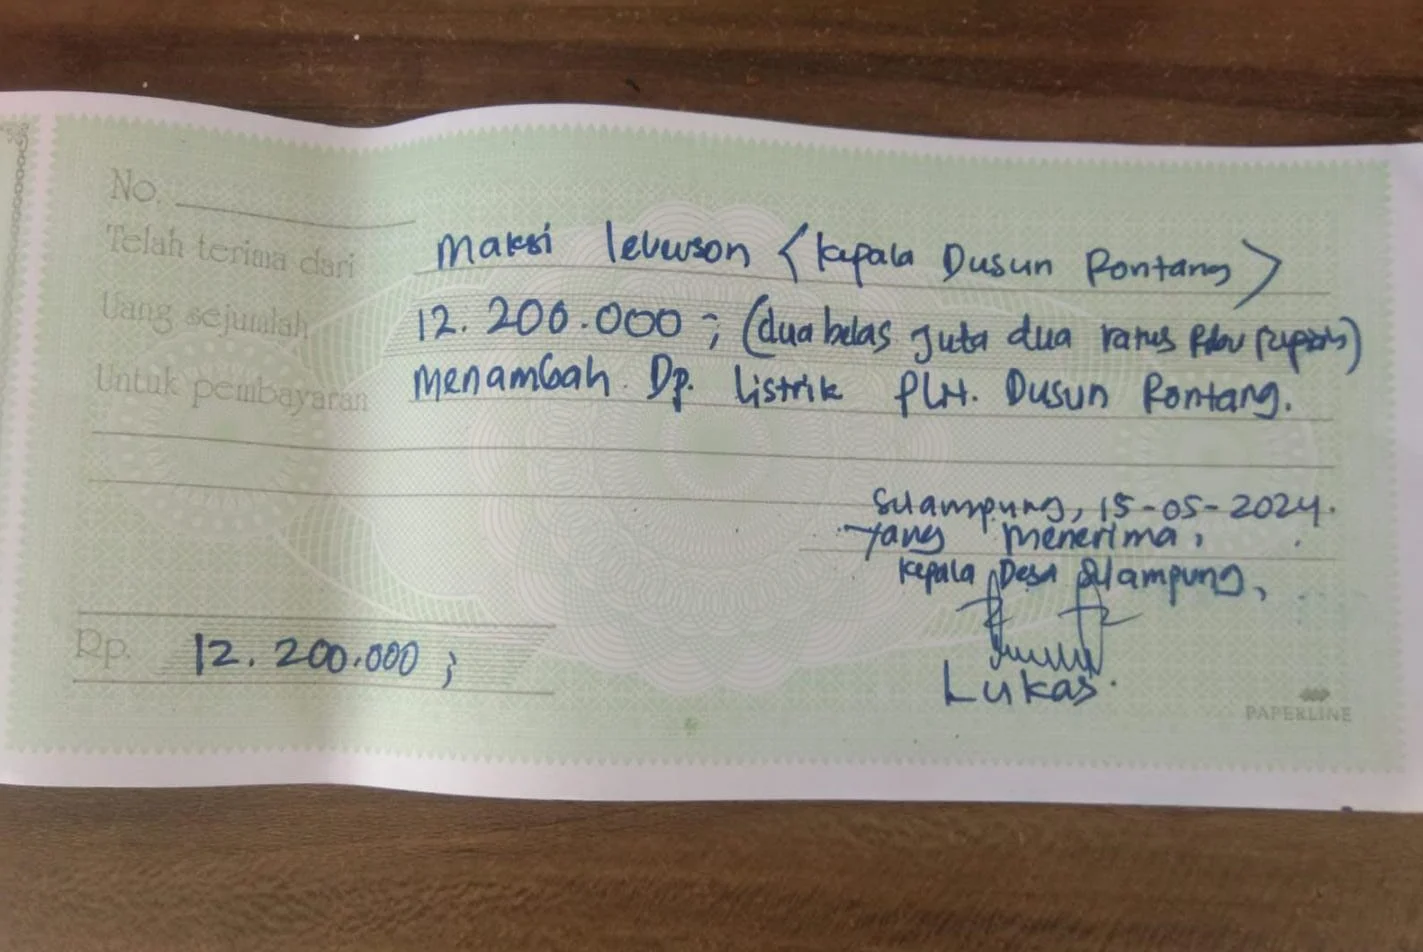 No.
Telah terima dari Maksi levuson (kepala Dusun Rontang)
Uang sejumlah 12.200.000; (dua belas juta dua ratus Ribu rupiah)
Untuk pembayaran menambah Dp. listrik PLN. Dusun Rontang.
Silampung, 15-05-2024.
Yang menerima,
kepala Desa Silampung,
Rp. 12.200.000;
Lukas.
PAPERLINE